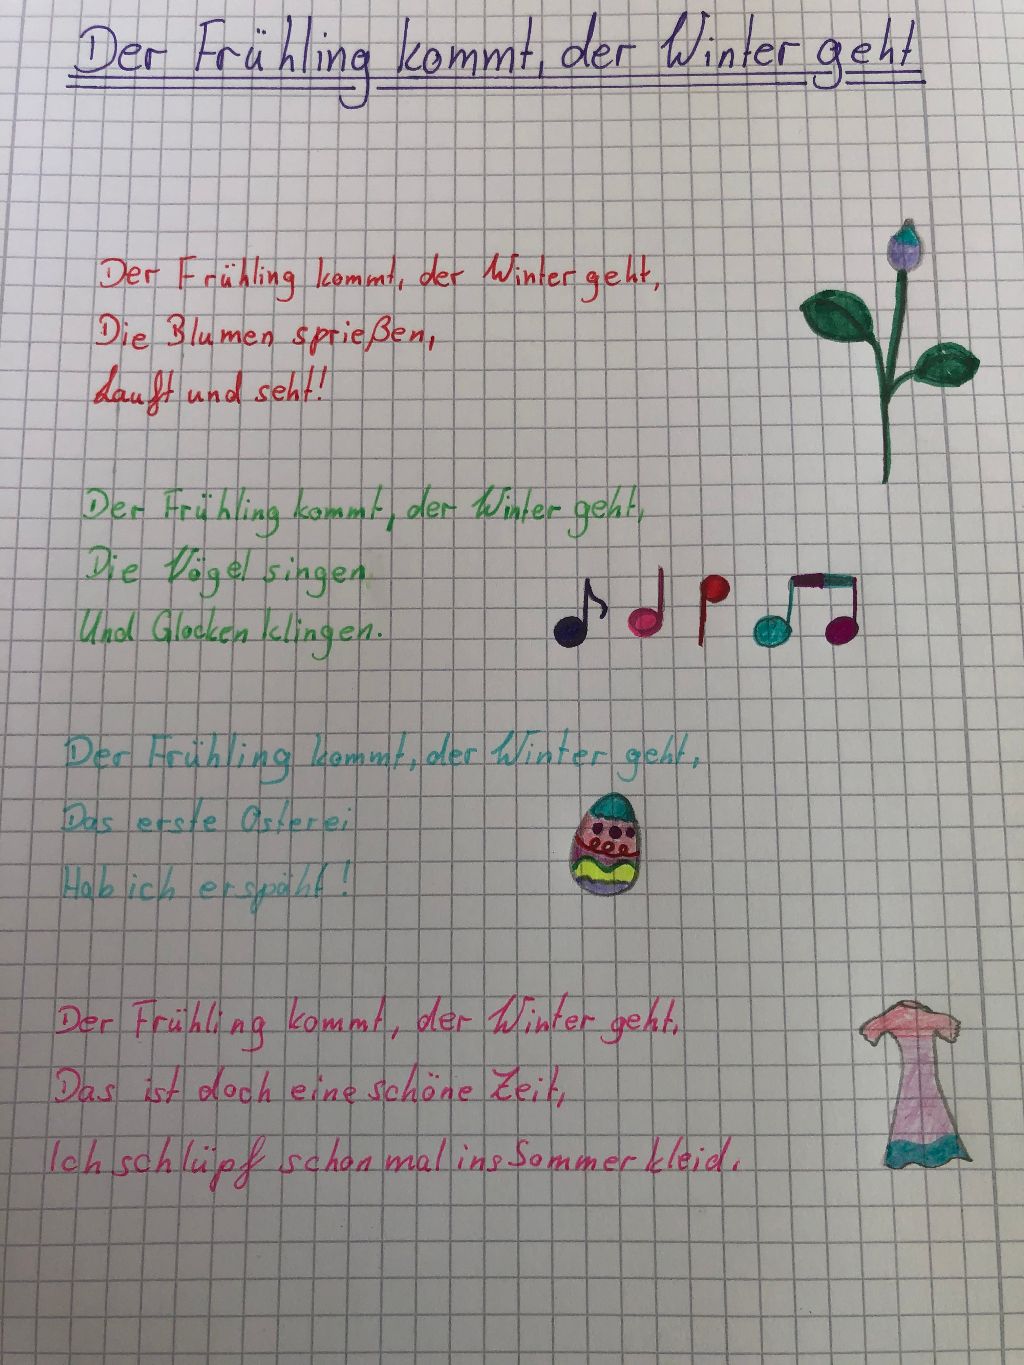 Der Frühling kommt, der Winter geht
Der Frühling kommt, der Winter geht,
Die Blumen sprießen,
Lauft und seht!
Der Frühling kommt, der Winter geht,
Die Vögel singen
Und Glocken klingen.
Der Frühling kommt, der Winter geht,
Das erste Osterei
Hab ich erspäht!
Der Frühling kommt, der Winter geht.
Das ist doch eine schöne Zeit,
Ich schlüpf schon mal ins Sommerkleid.